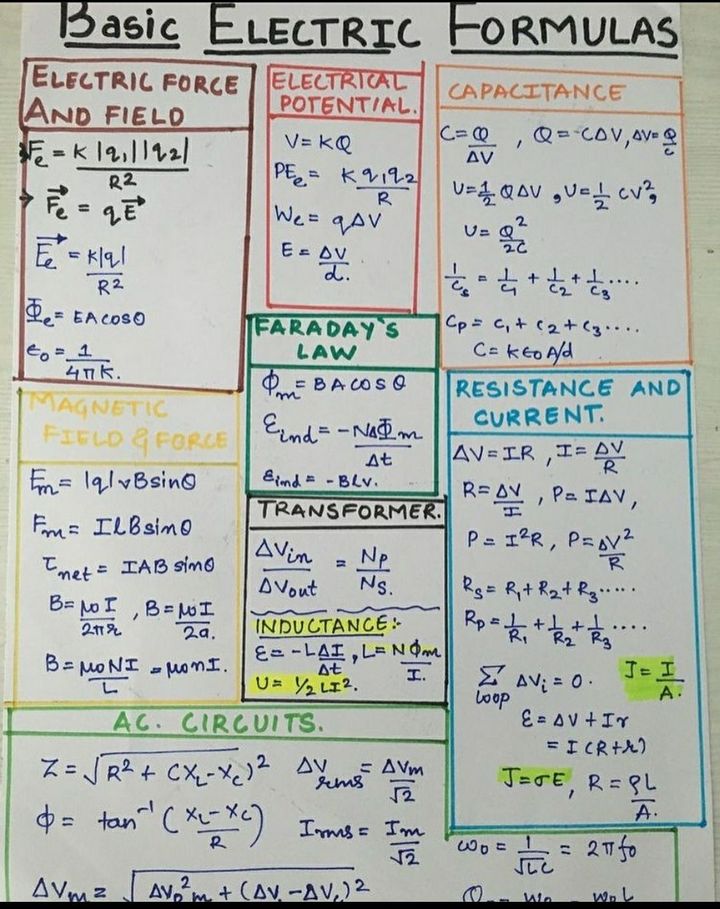 Basic ELECTRIC FORMULAS
ELECTRIC FORCE
AND FIELD
Fe = K|q1||q2|/R²
→ F⃗e = qE⃗
E⃗e = k|q|/R²
Φe = EA cosθ
ϵ0 = 1/4πK.
ELECTRICAL
POTENTIAL.
V = KQ
PEe = Kq1q2/R
We = qΔV
E = ΔV/d.
CAPACITANCE
C = Q/ΔV , Q = CΔV, ΔV = Q/C
U = 1/2 QΔV , U = 1/2 CV²,
U = Q²/2C
1/Cs = 1/C1 + 1/C2 + 1/C3 ....
Cp = C1 + C2 + C3 ....
C = Kϵ0 A/d
FARADAY'S
LAW
Φm = BA cosθ
Ɛind = -NΔΦm/Δt
Ɛind = -BLV.
MAGNETIC
FIELD & FORCE
Fm = |q|vBsinθ
Fm = ILBsinθ
τnet = IAB sinθ
B = μ0I/2πr , B = μ0I/2a.
B = μ0NI/L = μ0nI.
TRANSFORMER.
ΔVin/ΔVout = Np/Ns.
INDUCTANCE:-
Ɛ = -LΔI/Δt , L = NΦm/I.
U = 1/2 LI².
RESISTANCE AND
CURRENT.
ΔV = IR , I = ΔV/R
R = ΔV/I , P = IΔV,
P = I²R , P = ΔV²/R
Rs = R1 + R2 + R3 .....
Rp = 1/R1 + 1/R2 + 1/R3 ....
Σloop ΔVi = 0. J = I/A.
Ɛ = ΔV + Ir
= I(R+r)
J = σE, R = ρL/A.
A.C. CIRCUITS.
Z = √R² + (XL-XC)² ΔVrms = ΔVm/√2
Φ = tan⁻¹(XL-XC/R) Irms = Im/√2
ω0 = 1/√LC = 2πf0